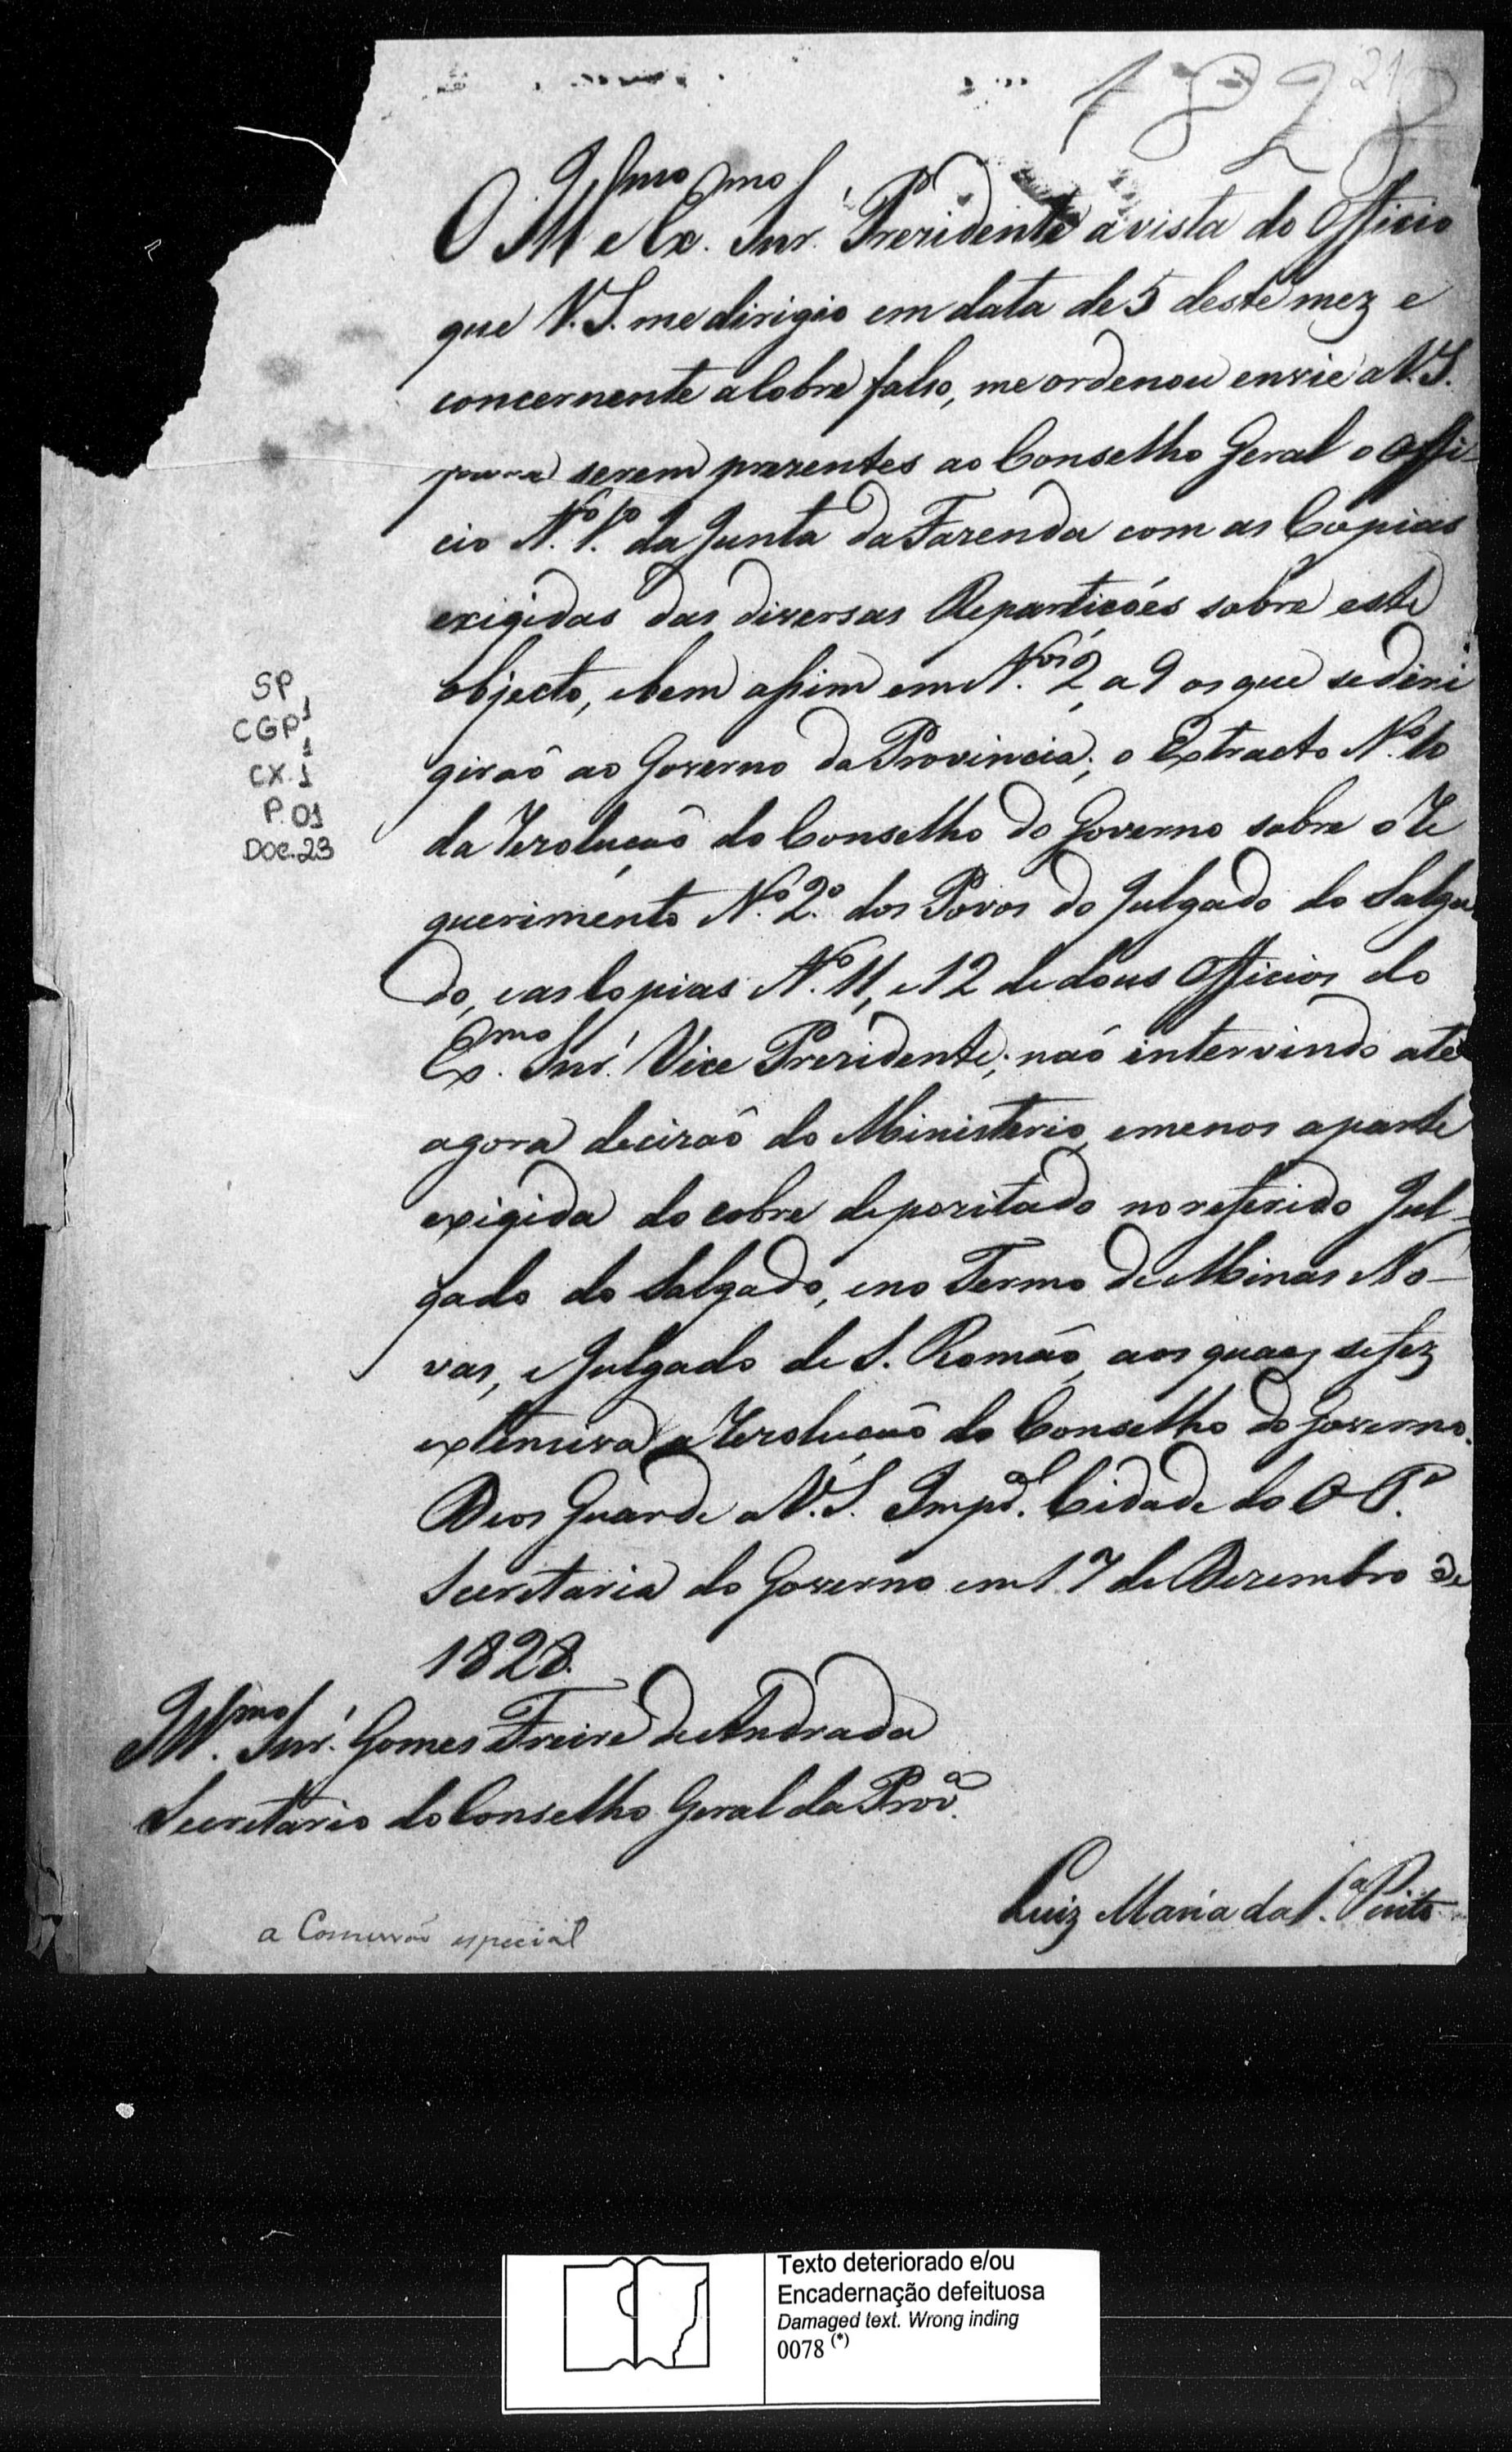 1828
21
O Ill.mo e Ex.mo Snr. Prezidente á vista do Officio
que V.S. me dirigio em data de 5 deste mez e
concernente a Cobre falso, me ordenou envie a V.S.
para serem prezentes ao Conselho Geral o Offi-
cio N.º 1.º da Junta da Fazenda com as Copias
exigidas das diversas Repartições sobre este
objecto, e bem assim em N.os 2, a 9 os que se diri
girão ao Governo da Provincia; o Extracto N.º 10
da Rezolução do Conselho do Governo sobre o Re
querimento N.º 2.º dos Povos do Julgado do Salga
do, e as Copias N.º 11, e 12 de dous Officios do
Ex.mo Snr. Vice Prezidente; não intervindo até
agora decizão do Ministerio, e menos a parte
exigida do cobre depozitado no referido Jul-
gado do Salgado, e no Termo de Minas No-
vas, e Julgado de S. Romão, aos quaes se fez
extensiva a Rezolução do Conselho do Governo.
Deos Guarde a V.S. Imp.al Cidade do O. P.
Secretaria do Governo em 17 de Dezembro de
1828.
Ill.mo Snr. Gomes Freire de Andrada
Secretario do Conselho Geral da Prov.a
Luiz Maria da S.a Pinto
a Comissão especial
SP
CGP 1
1
CX. 1
P. 01
DOC. 23
Texto deteriorado e/ou
Encadernação defeituosa
Damaged text. Wrong inding
0078 (*)